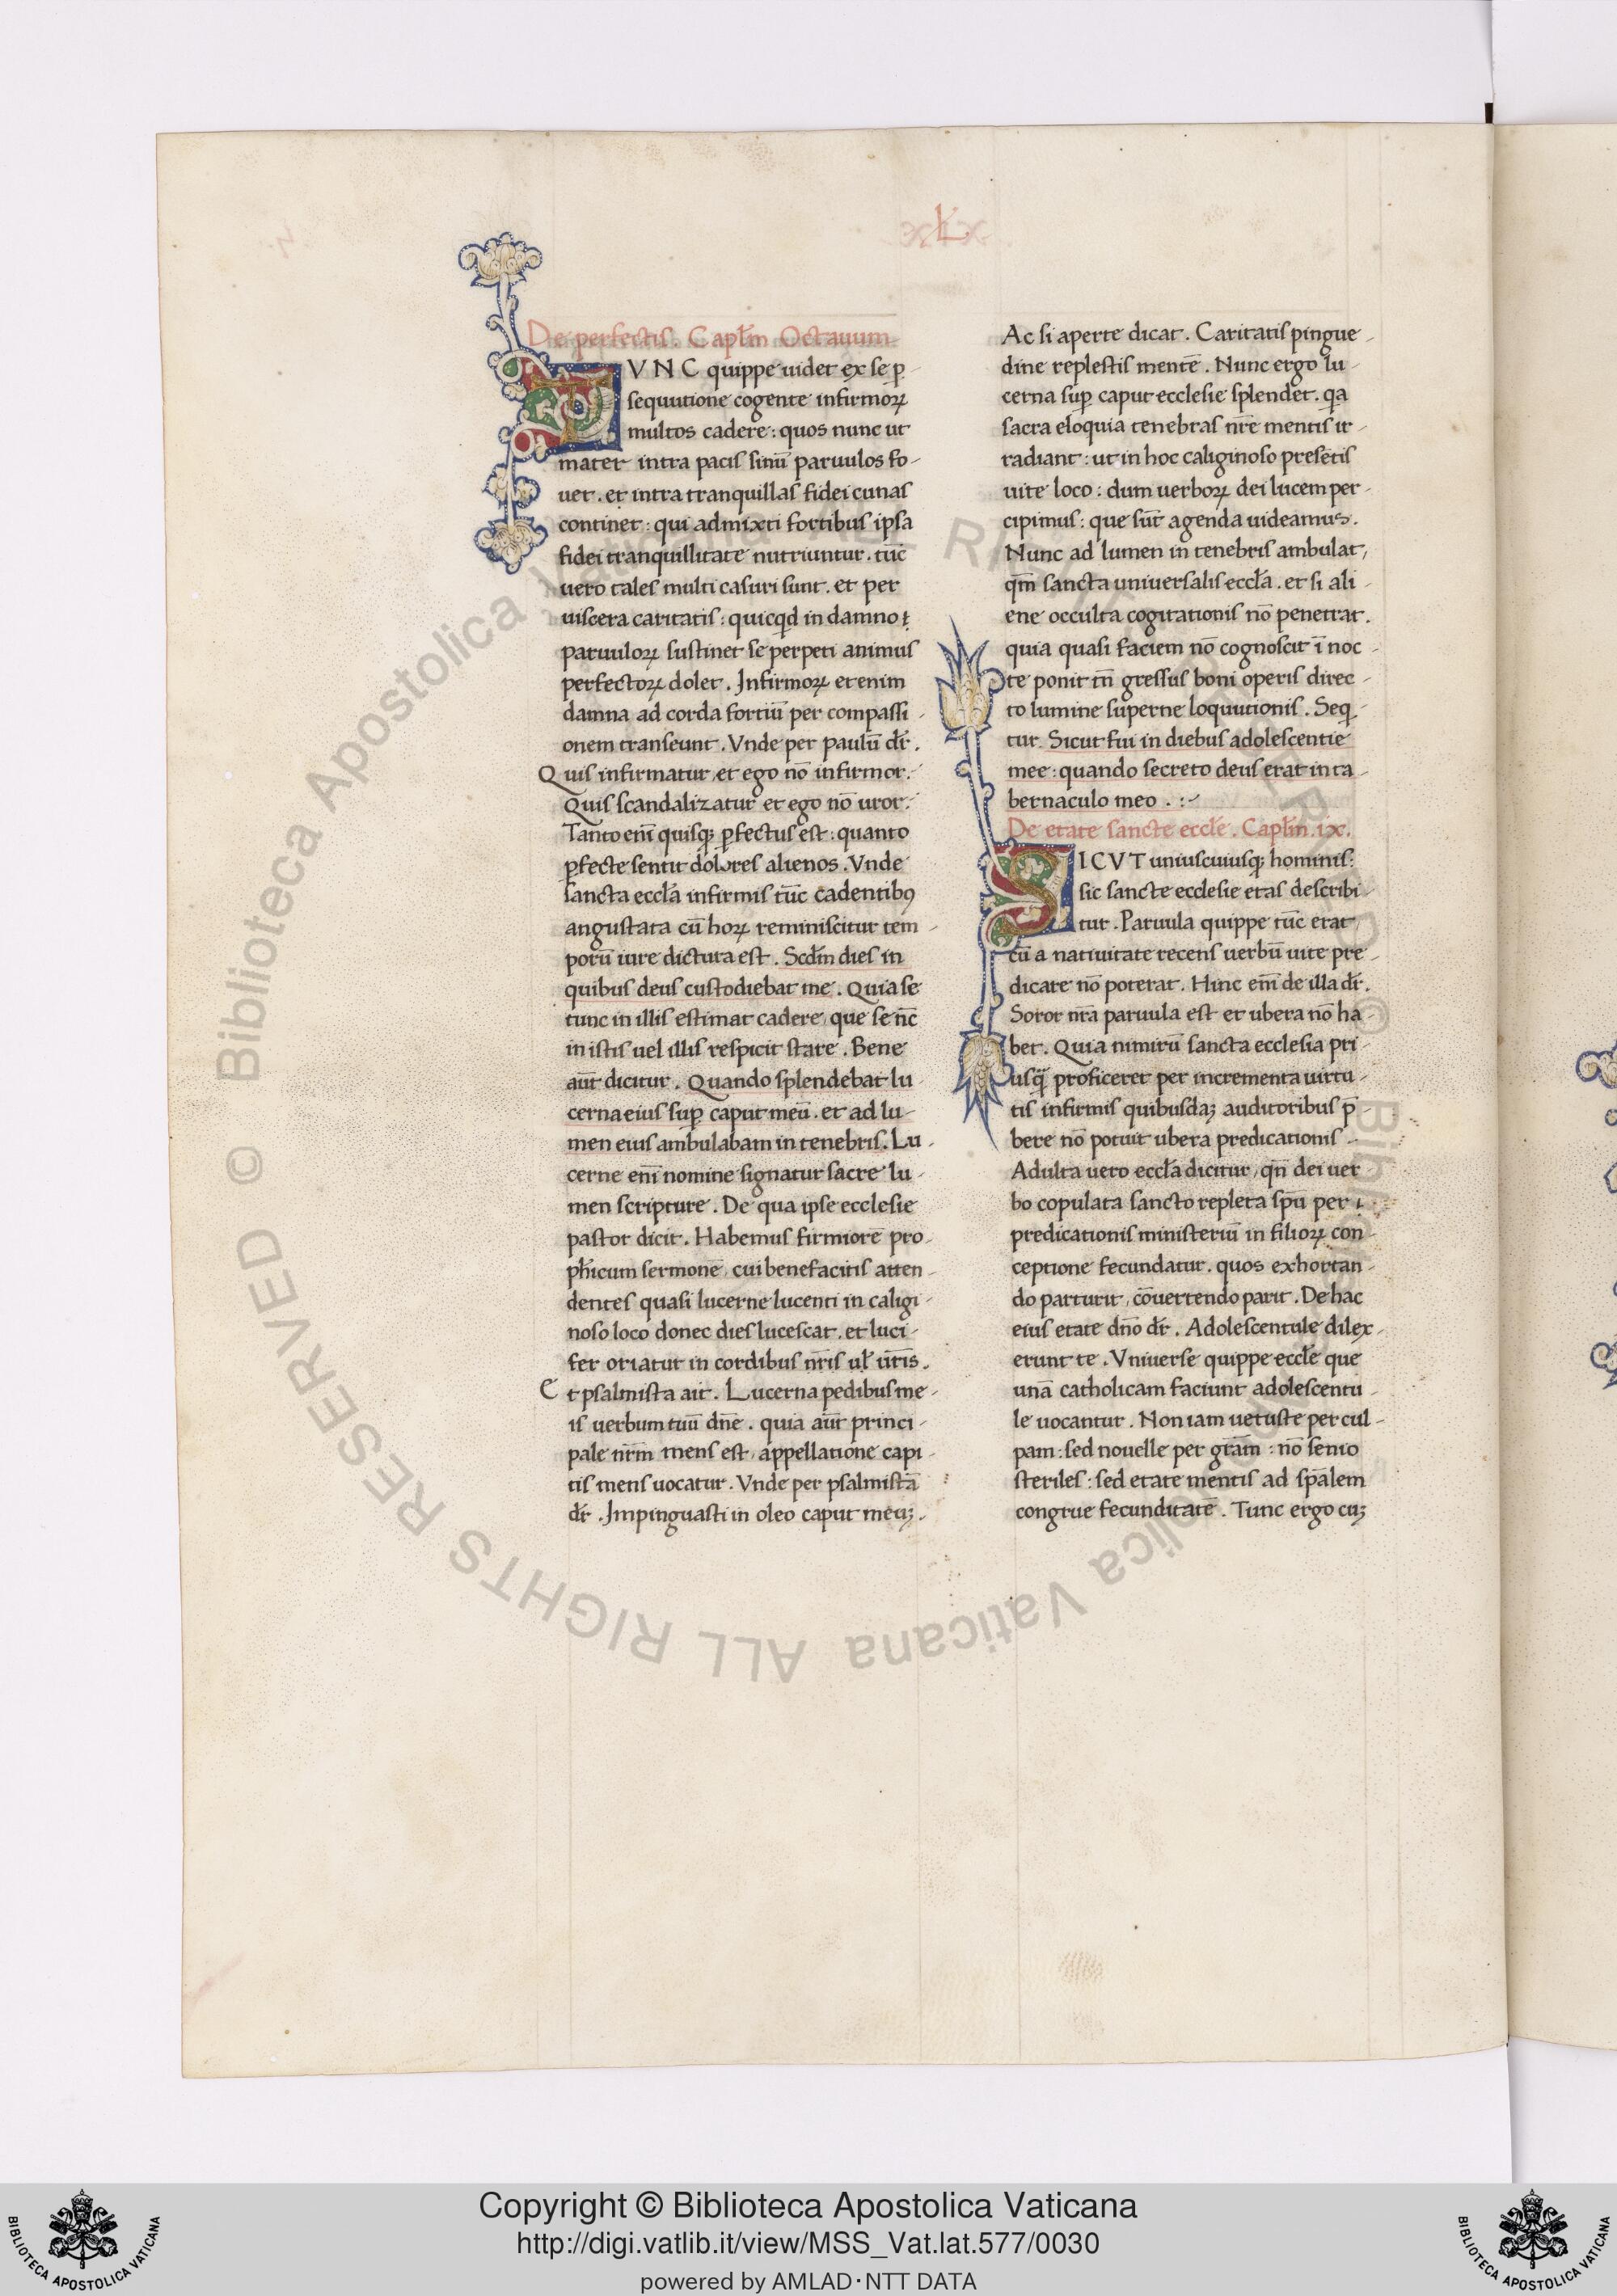 L
De perfectis. Capl̄m Octauum
TVNC quippe uidet ex se ꝑ-
sequutione cogente infirmoꝝ
multos cadere: quos nunc ut
mater intra pacis sinū paruulos fo-
uet. et intra tranquillas fidei cunas
continet: qui admixti fortibus ipsa
fidei tranquillitate nutriuntur. tūc
uero tales multi casuri sunt. et per
uiscera caritatis: quicqd in damno
paruuloꝝ sustinet se perpeti animus
perfectoꝝ dolet. Infirmoꝝ etenim
damna ad corda fortiū per compassi-
onem transeunt. Vnde per paulū dr̄.
Quis infirmatur, et ego nō infirmor.
Quis scandalizatur et ego nō uror.
Tanto enī quisqꝫ ꝑfectus est: quanto
ꝑfecte sentit dolores alienos. Vnde
sancta eccl̄a infirmis tūc cadentibꝰ
angustata cū hoꝝ reminiscitur tem-
porū iure dictura est. Scd̄m dies in
quibus deus custodiebat me. Quia se
tunc in illis estimat cadere, que se nc̄
in istis uel illis respicit stare. Bene
aūt dicitur. Quando splendebat lu-
cerna eius suꝑ caput meū. et ad lu-
men eius ambulabam in tenebris. Lu-
cerne enī nomine signatur sacre lu-
men scripture. De qua ipse ecclesie
pastor dicit. Habemus firmiorē pro-
ph̄icum sermonē, cui benefacitis atten-
dentes quasi lucerne lucenti in caligi-
noso loco donec dies lucescat. et luci-
fer oriatur in cordibus nr̄is ul̄ ur̄is.
Et psalmista ait. Lucerna pedibus me-
is uerbum tuū dn̄e. quia aūt princi-
pale nr̄m mens est, appellatione capi-
tis mens uocatur. Vnde per psalmistā
dr̄. Impinguasti in oleo caput meuꝫ.
Ac si aperte dicat. Caritatis pingue-
dine replestis mentē. Nunc ergo lu-
cerna suꝑ caput ecclesie splendet. qa
sacra eloquia tenebras nr̄e mentis ir-
radiant: ut in hoc caliginoso presētis
uite loco: dum uerboꝝ dei lucem per-
cipimus: que sūt agenda uideamus.
Nunc ad lumen in tenebris ambulat,
qm̄ sancta uniuersalis eccl̄a. et si ali-
ene occulta cogitationis nō penetrat.
quia quasi faciem nō cognoscit ī noc-
te ponit tn̄ gressus boni operis direc-
to lumine superne loquutionis. Seq-
tur. Sicut fui in diebus adolescentie
mee: quando secreto deus erat in ta-
bernaculo meo. :~
De etate sancte eccl̄e. Capl̄m. ix.
SICVT uniuscuiusqꝫ hominis:
sic sancte ecclesie etas describi-
tur. Paruula quippe tūc erat,
cū a natiuitate recens uerbū uite pre-
dicare nō poterat. Hinc enī de illa dr̄.
Soror nr̄a paruula est et ubera nō ha-
bet. Quia nimirū sancta ecclesia pri-
usq̄ proficeret per incrementa uirtu-
tis infirmis quibusdaꝫ auditoribus p̄-
bere nō potuit ubera predicationis.
Adulta uero eccl̄a dicitur, qn̄ dei uer-
bo copulata sancto repleta spū per
predicationis ministeriū in filioꝝ con-
ceptione fecundatur. quos exhortan-
do parturit, cōuertendo parit. De hac
eius etate dn̄o dr̄. Adolescentule dilex-
erunt te. Vniuerse quippe eccl̄e que
unā catholicam faciunt adolescentu-
le uocantur. Non iam uetuste per cul-
pam: sed nouelle per grām: nō senio
steriles: sed etate mentis ad sp̄alem
congrue fecunditatē. Tunc ergo cuꝫ
© Biblioteca Apostolica Vaticana ALL RIGHTS RESERVED
Copyright © Biblioteca Apostolica Vaticana
http://digi.vatlib.it/view/MSS_Vat.lat.577/0030
powered by AMLAD·NTT DATA
BIBLIOTECA APOSTOLICA VATICANA
BIBLIOTECA APOSTOLICA VATICANA